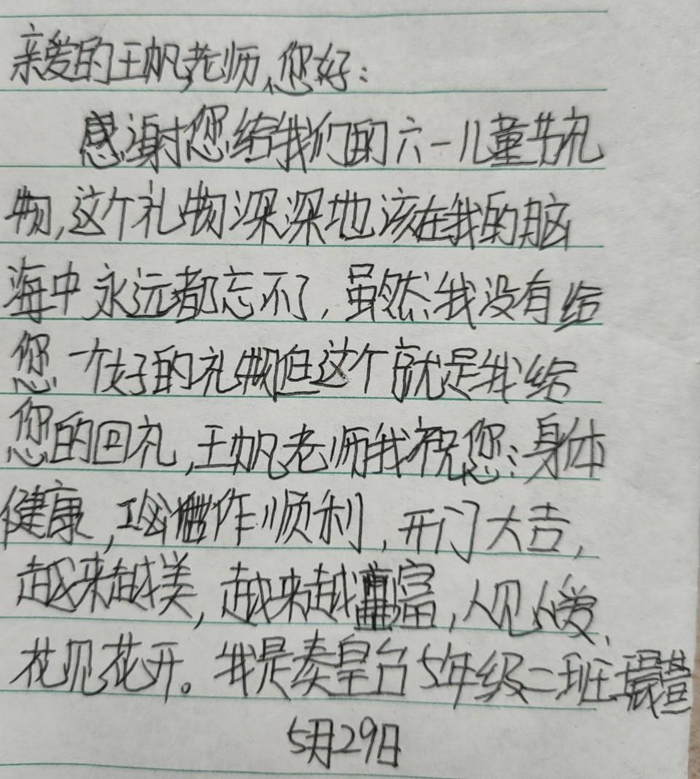 亲爱的王帆老师,您好:
感谢您给我们的六一儿童节礼
物,这个礼物深深地该在我的脑
海中永远都忘不了,虽然我没有给
您一个好的礼物但这个就是我给
您的回礼,王帆老师我祝您:身体
健康,工作顺利,开门大吉,
越来越美,越来越富,人见人爱,
花见花开。我是秦皇台5年级二班
5月29日